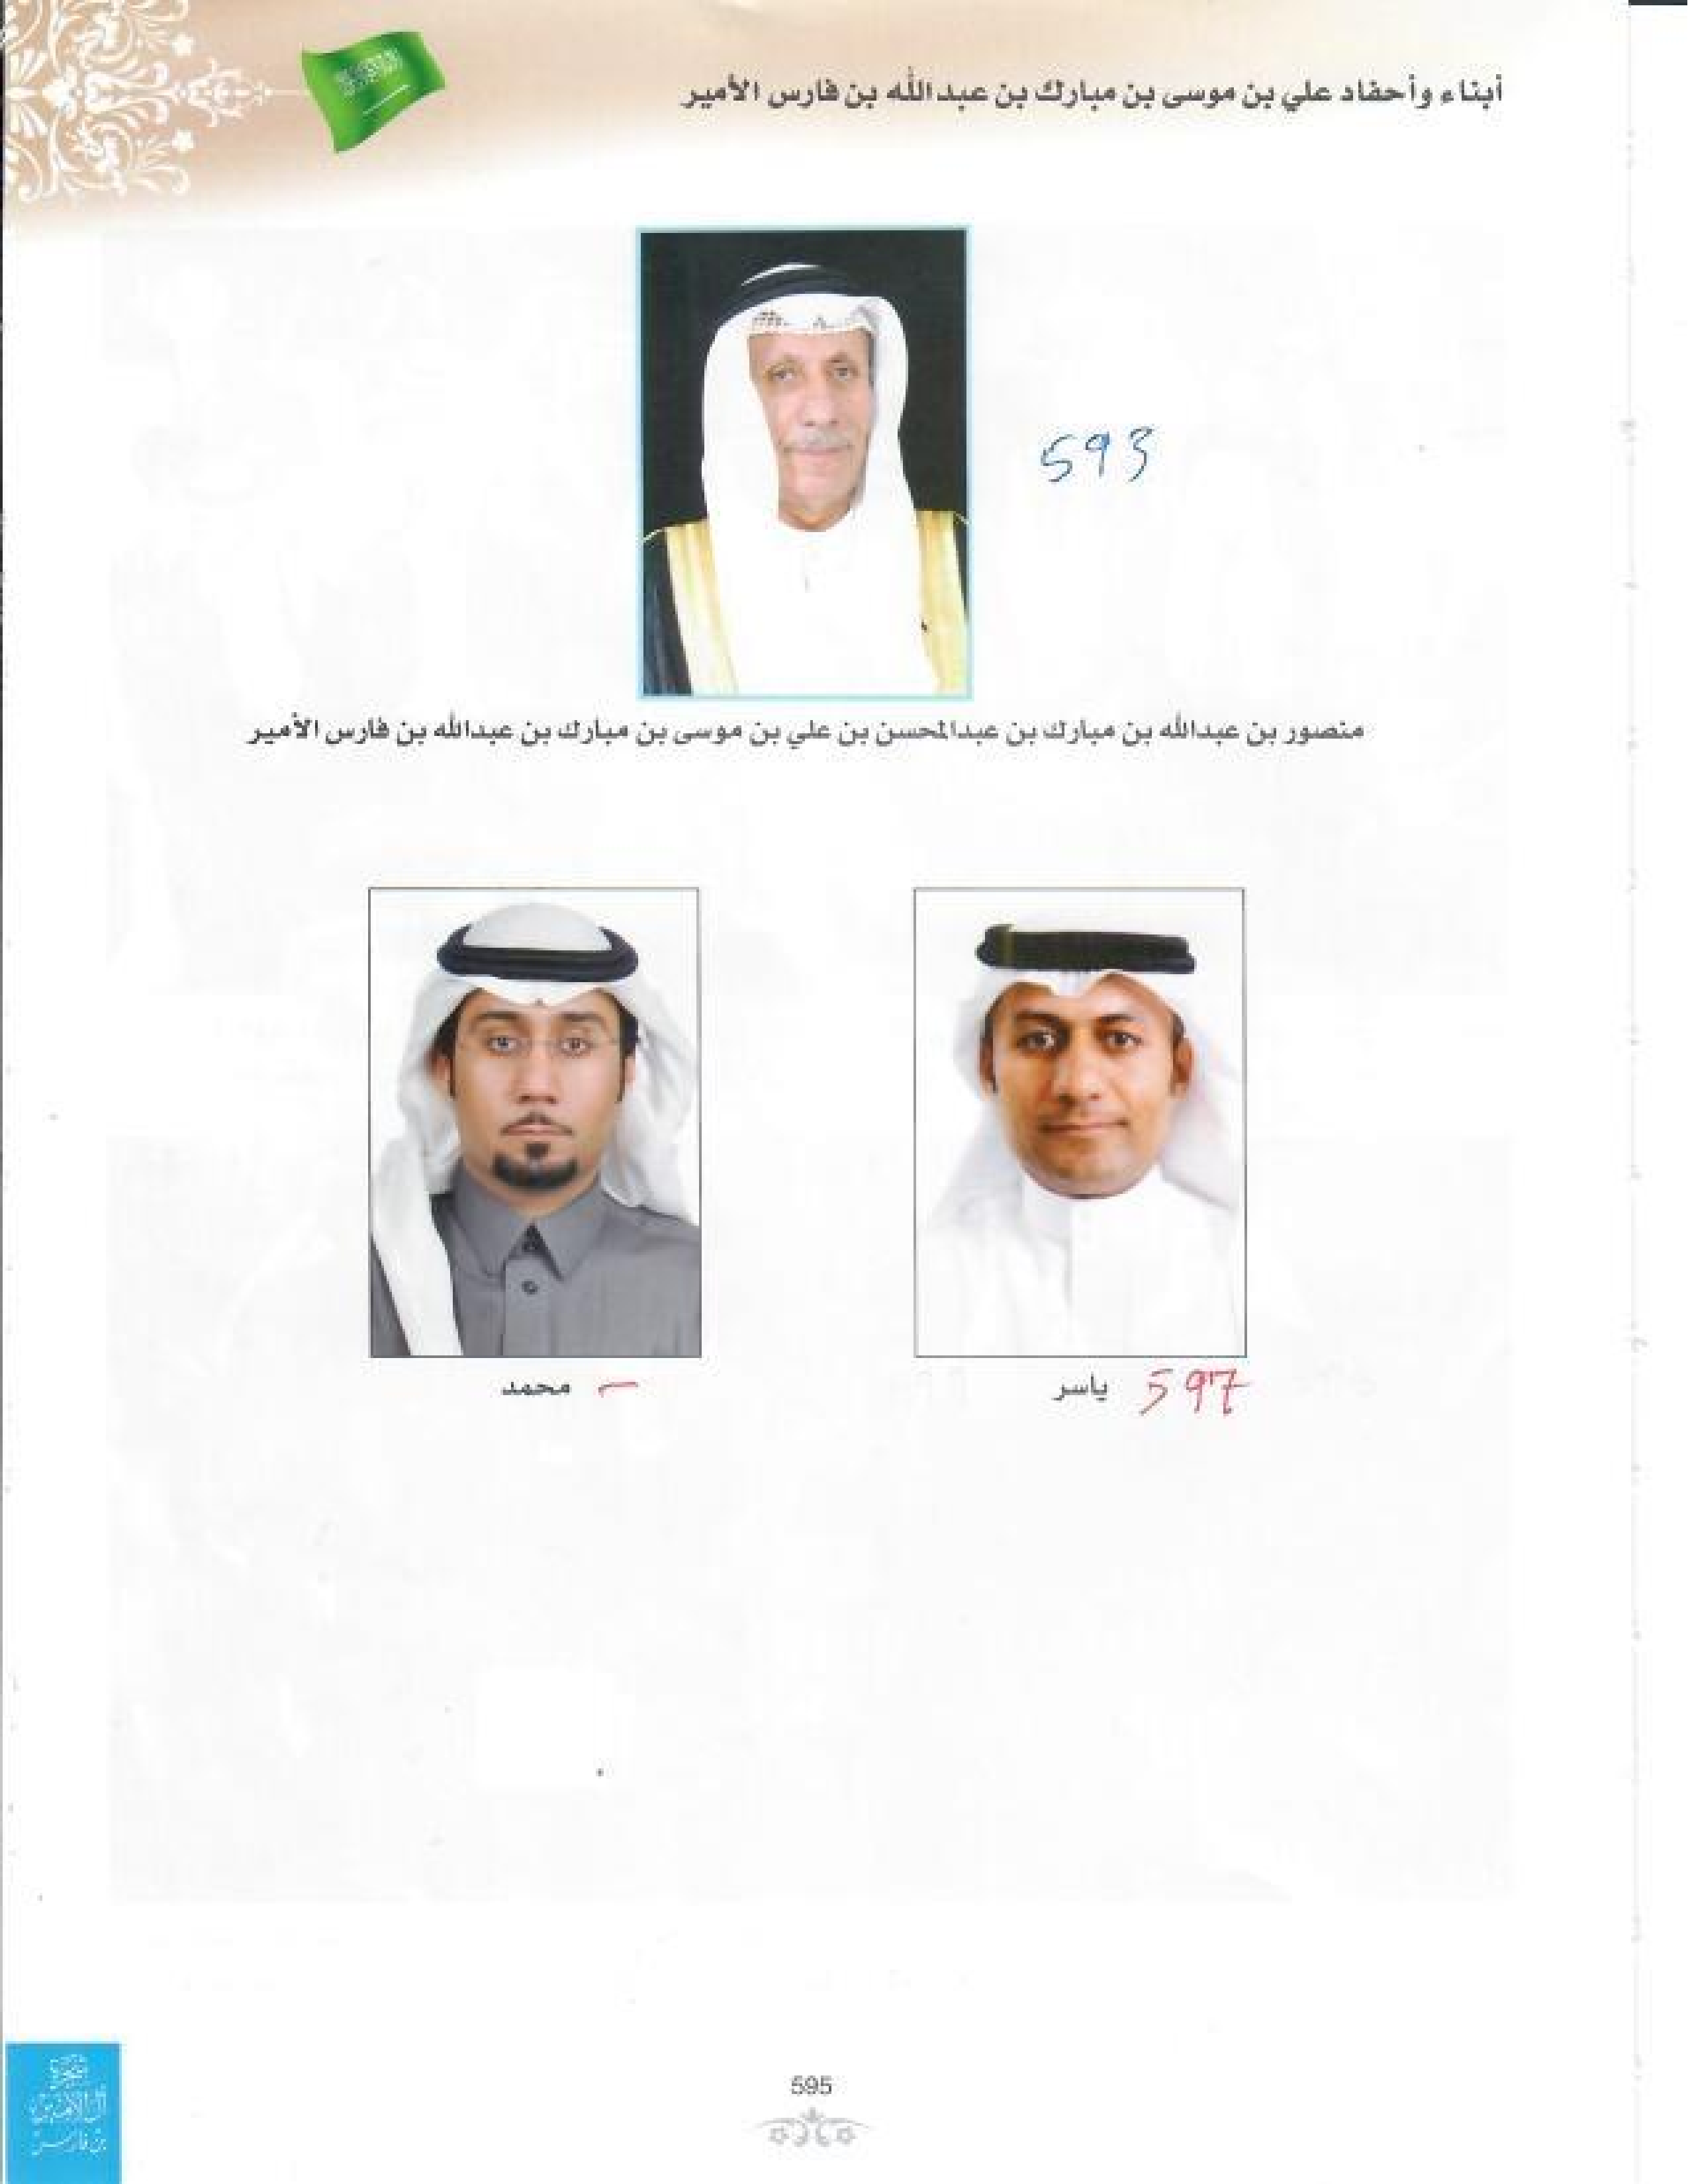 أبناء وأحفاد علي بن موسى بن مبارك بن عبدالله بن فارس الأمير
593
منصور بن عبدالله بن مبارك بن عبدالمحسن بن علي بن موسى بن مبارك بن عبدالله بن فارس الأمير
597 ياسر
- محمد
595
شجرة
آل الأمير
بن فارس